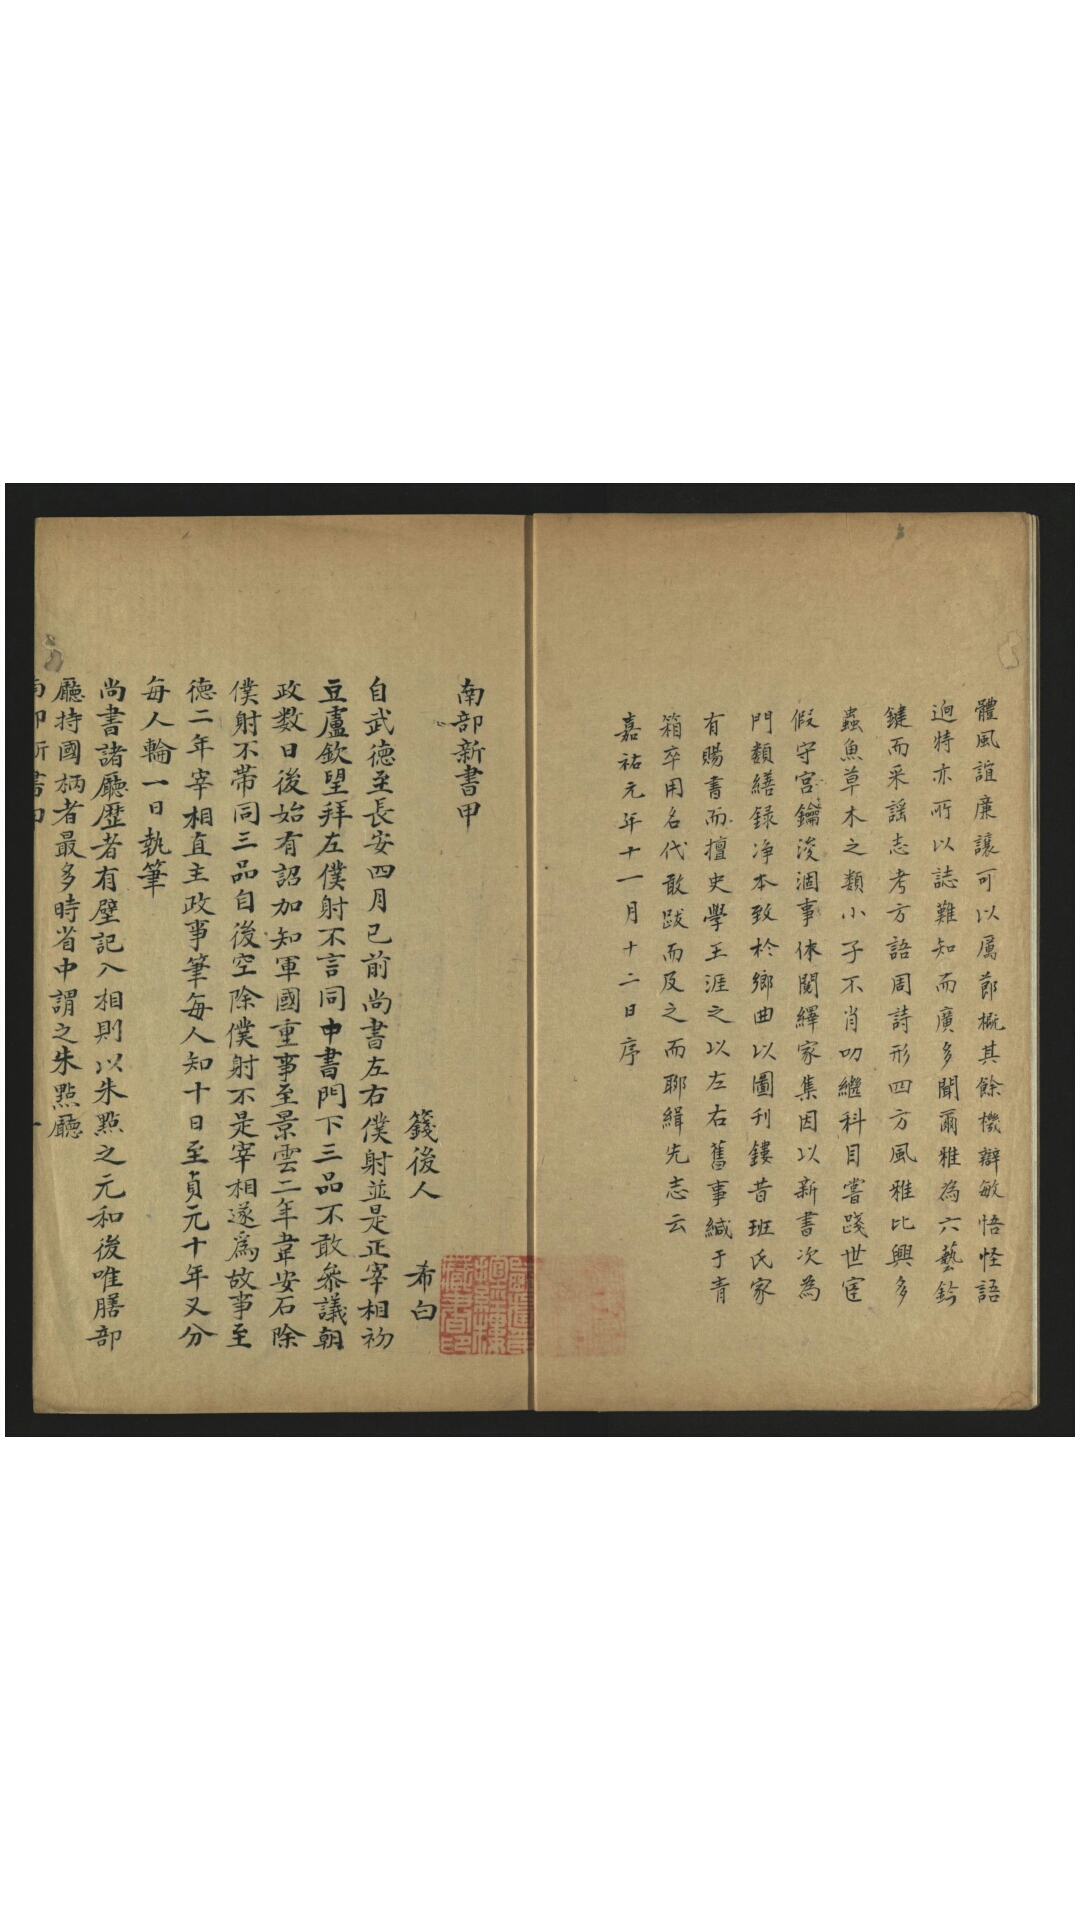 體風誼廉讓可以厲節概其餘機辯敏悟怪語
逈特亦所以誌難知而廣多聞爾雅為六藝鈐
鍵而采謠志考方語周詩形四方風雅比興多
蟲魚草木之類小子不肖叨繼科目嘗踐世官
假守宮鑰浚涸事休閱繹家集因以新書次為
門類繕録净本致於鄉曲以圖刊鏤昔班氏家
有賜書而擅史學王涯之以左右舊事緘于青
箱卒用名代敢跋而及之而聊緝先志云
嘉祐元年十一月十二日序
南部新書甲
籛後人 希白
自武德至長安四月已前尚書左右僕射並是正宰相初
豆盧欽望拜左僕射不言同中書門下三品不敢叅議朝
政数日後始有詔加知軍國重事至景雲二年韋安石除
僕射不帶同三品自後空除僕射不是宰相遂爲故事至
德二年宰相直主政事筆每人知十日至貞元十年又分
每人輪一日執筆
尚書諸廳歷者有壁記入相則以朱點之元和後唯膳部
廳持國柄者最多時省中謂之朱點廳